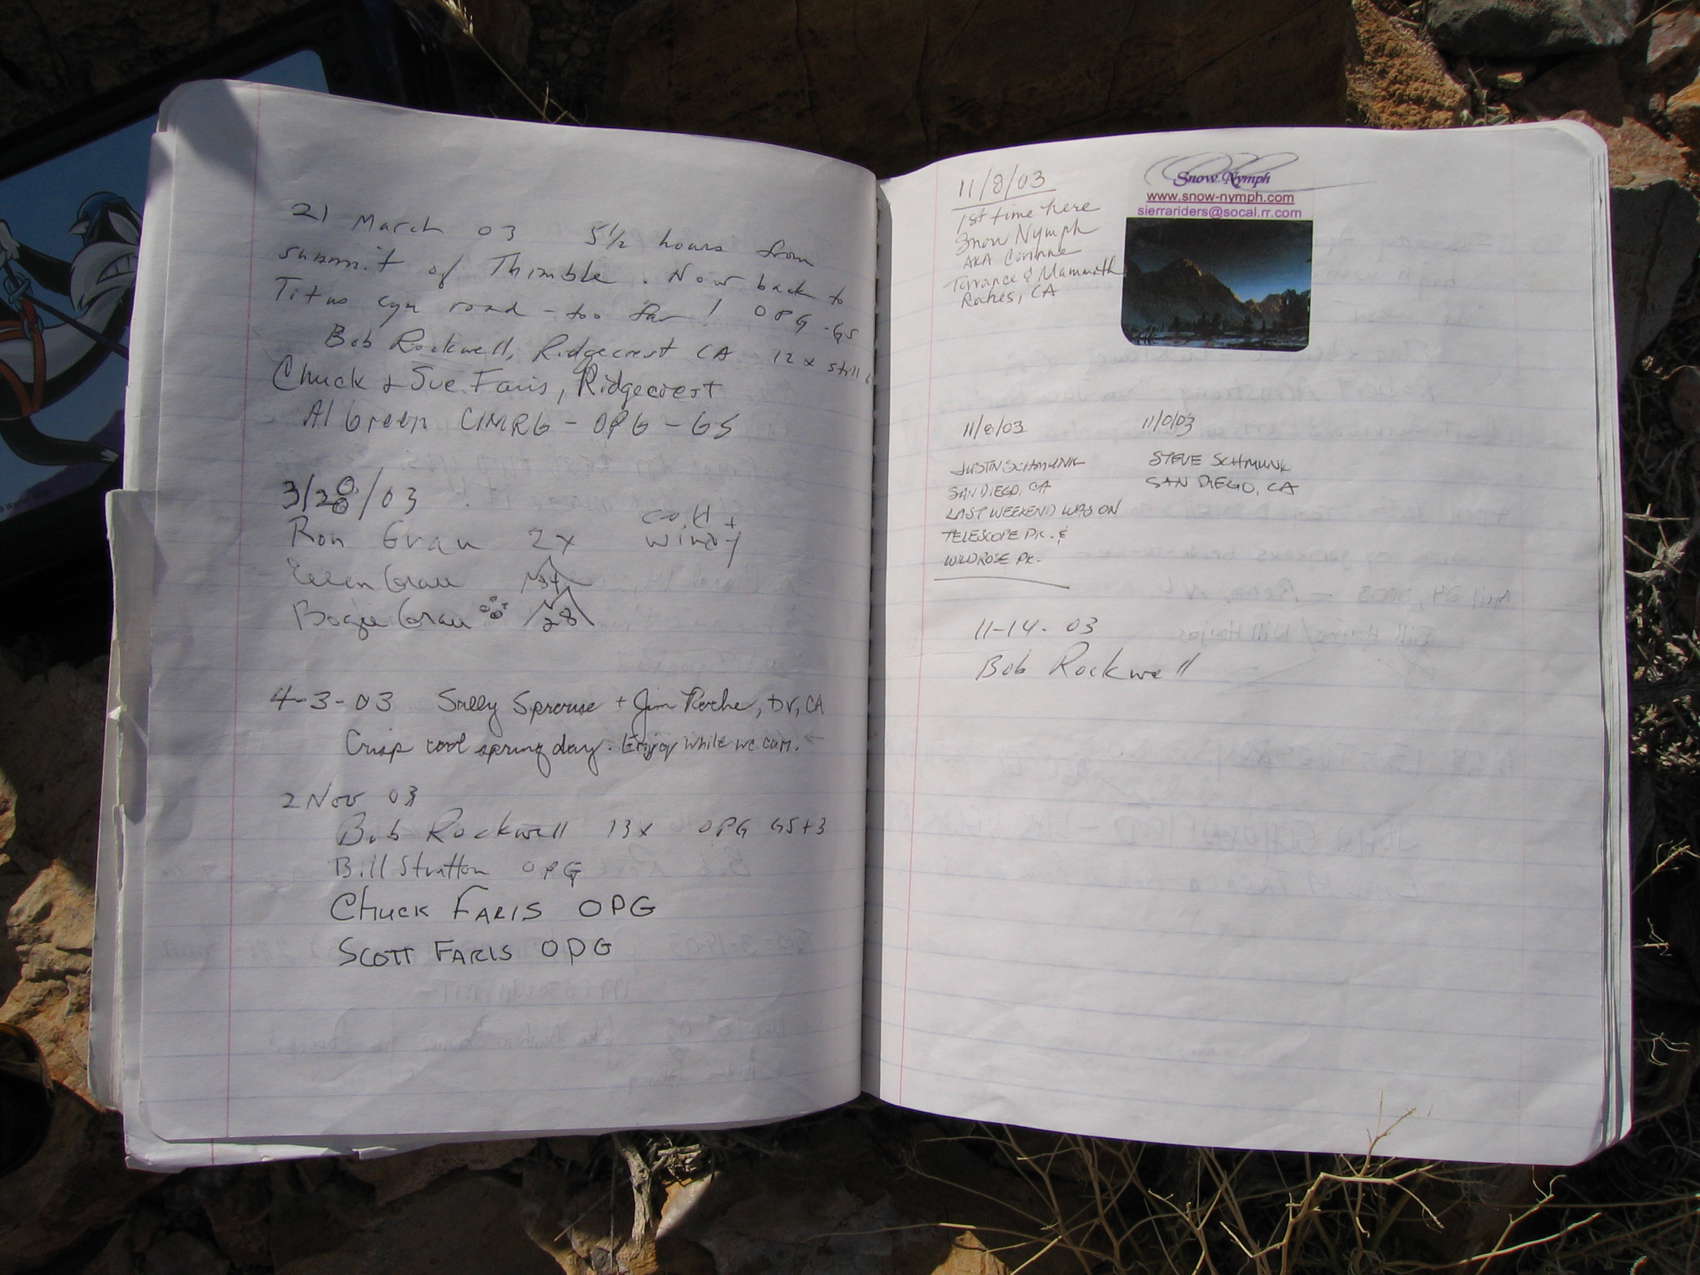 21 March 03 5½ hours from
summit of Thimble. Now back to
Titus cyn road - too far! OPG-GS
Bob Rockwell, Ridgecrest CA 12x still
Chuck & Sue Faris, Ridgecrest
Al Green CIMRG - OPG - GS
3/28/03
Ron Grau 2x cold +
windy
Grau 34
Bogie Grau 28
4-3-03 Sally Sprouse + Jim Roche, DV, CA
Crisp cool spring day. Enjoy while we can.
2 Nov 03
Bob Rockwell 13x OPG GS+3
Bill Stratton OPG
CHUCK FARIS OPG
SCOTT FARIS OPG
11/8/03
1st time here
Snow Nymph
AKA Corinne
Torrance & Mammoth
Lakes, CA
Snow Nymph
www.snow-nymph.com
sierrariders@socal.rr.com
11/8/03
JUSTIN SCHMUNK
SAN DIEGO, CA
LAST WEEKEND WAS ON
TELESCOPE PK. &
WILDROSE PK.
11/8/03
STEVE SCHMUNK
SAN DIEGO, CA
11-14-03
Bob Rockwell